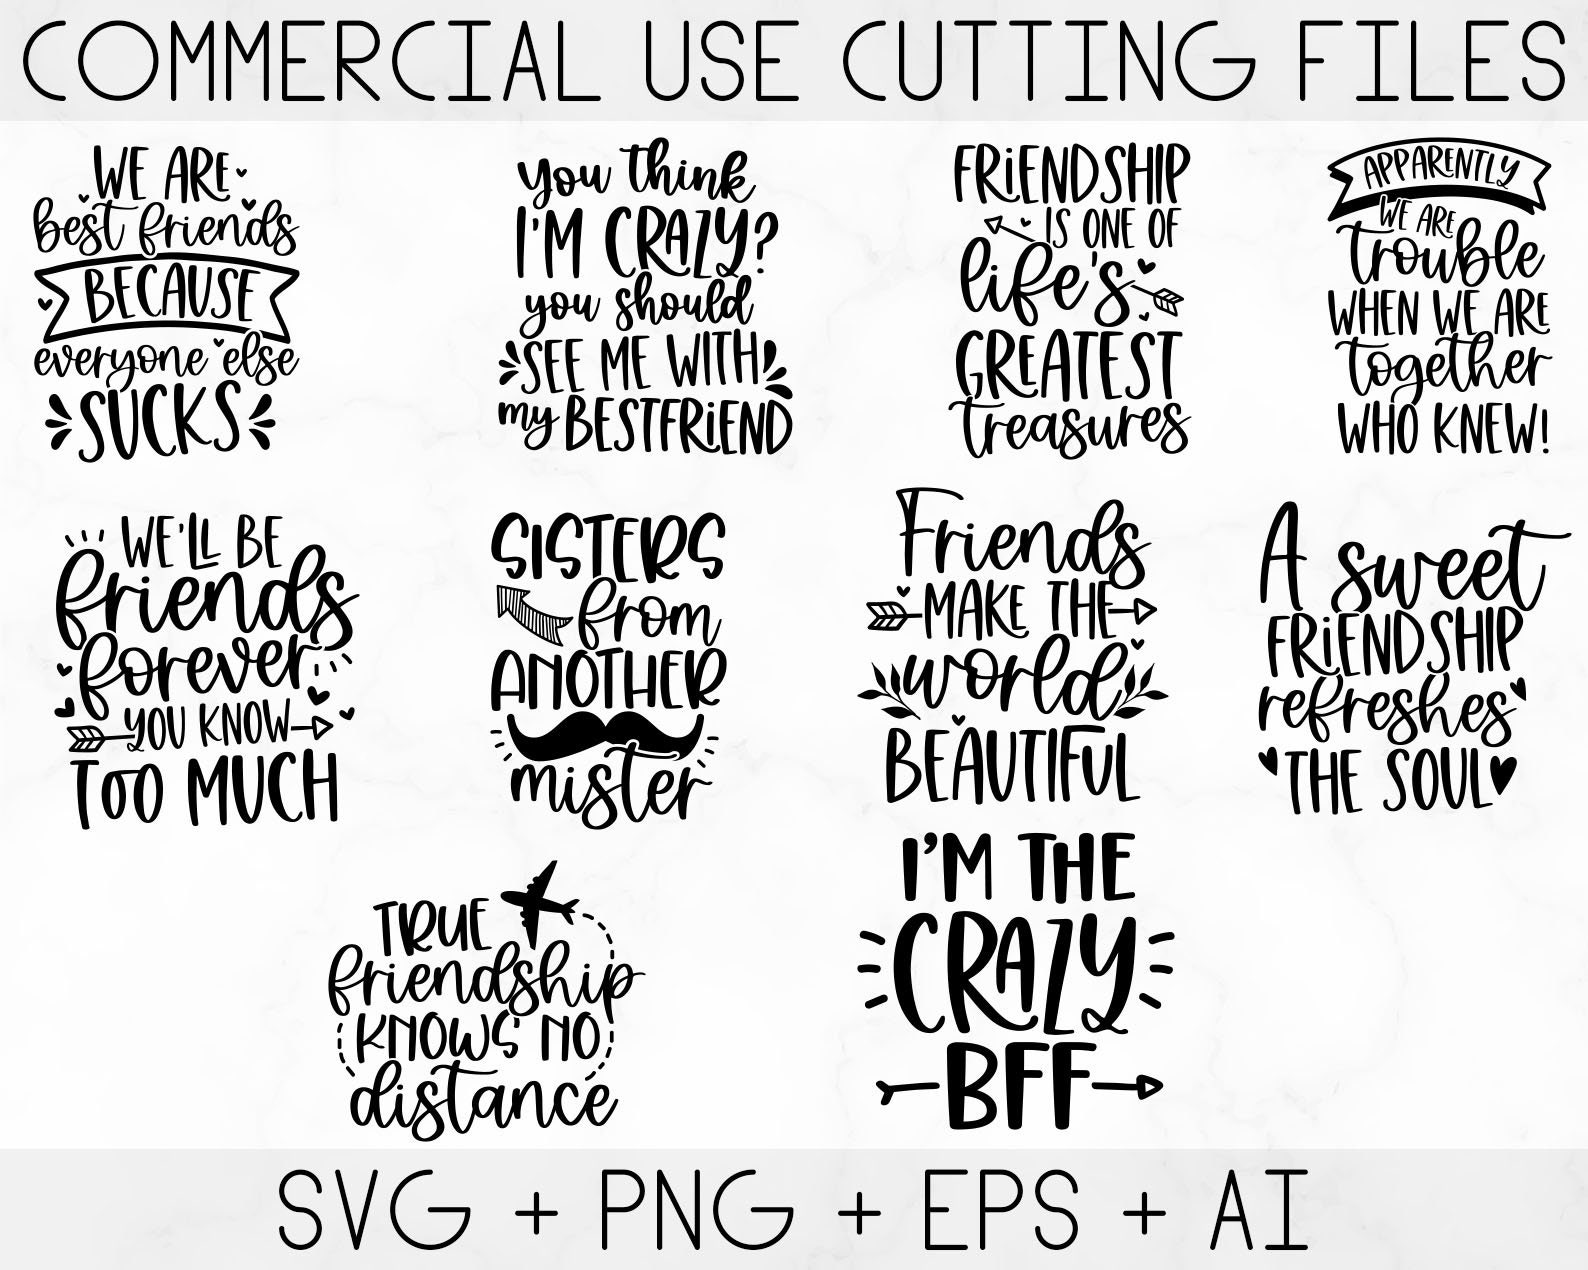 COMMERCIAL USE CUTTING FILES
WE ARE
best friends
BECAUSE
everyone else
SUCKS
You think
I'M CRAZY?
you should
SEE ME WITH
my BESTFRIEND
FRIENDSHIP
IS ONE OF
life's
GREATEST
treasures
APPARENTLY
WE ARE
trouble
WHEN WE ARE
together
WHO KNEW!
WE'LL BE
friends
forever
YOU KNOW
TOO MUCH
SISTERS
from
ANOTHER
mister
Friends
MAKE THE
world
BEAUTIFUL
A sweet
FRIENDSHIP
refreshes
THE SOUL
TRUE
friendship
KNOWS NO
distance
I'M THE
CRAZY
BFF
SVG + PNG + EPS + AI